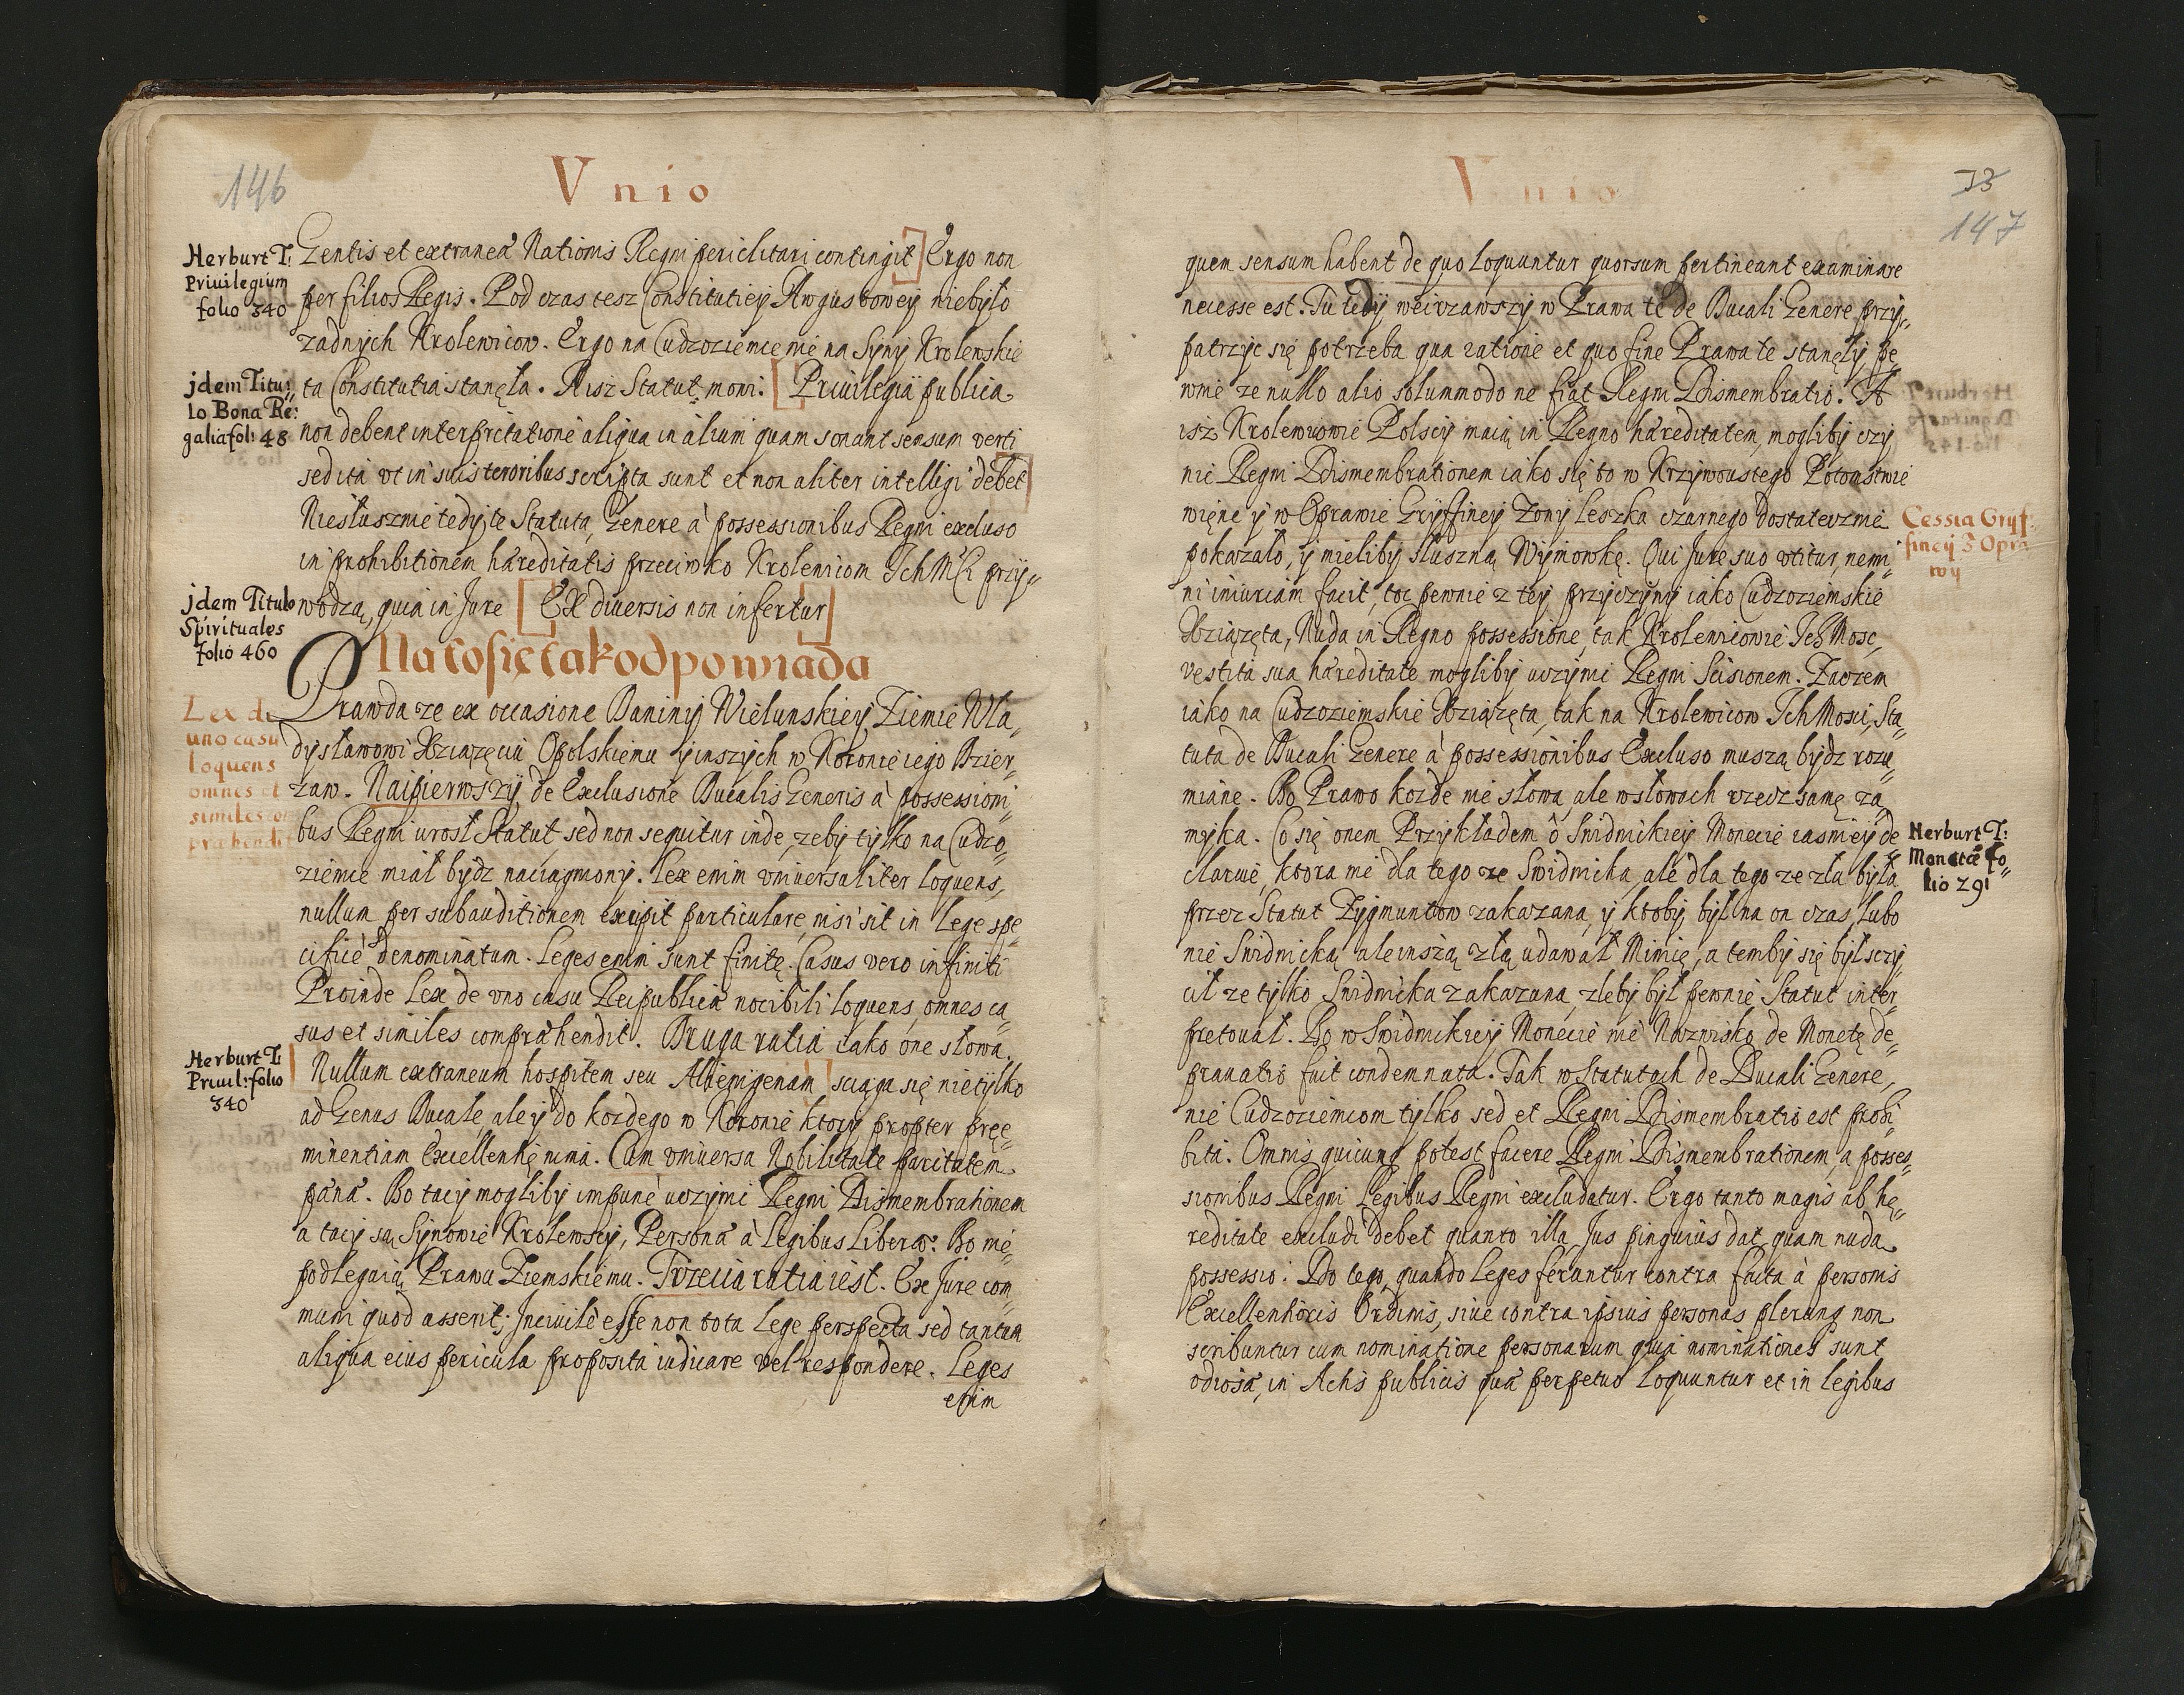 146
Vnio
Herburt T:
Priuilegium
folio 340
jdem Titu:
lo Bona Re:
galia fol: 48
jdem Titulo
Spirituales
folio 460
Lex de
uno casu
loquens
omnes et
similes com
præhendit
Herburt T:
Priuil: folio
340
Gentis et extraneæ Nationis Regni periclitari contingit] Ergo non
per filios Regis. Pod czas tesz Constitutiey Augustowey niebyło
zadnych Krolewicow. Ergo na Cudzoziemce nie na Syny Krolewskie
ta Constitutia stanęła. Aisz Statut mowi. [Priuilegia publica
non debent interpretatione aliqua in alium quam sonant sensum verti
sed ita vt in suis terroribus scripta sunt et non aliter intelligi debet]
Niesłusznie tedy te Statuta, Genere à possessionibus Regni excluso
in prohibitionem hæreditatis przeciwko Krolewicom Ich Mci przy„
wodzą, quia in Jure [Ex diuersis non infertur]
Na to się tak odpowiada
Prawda ze ex occasione Daniny Wielunskiey Ziemie Wła„
dysławowi Xiążęciu Opolskiemu y inszych w Koronie iego Dzier„
zaw. Naipierwszy de Exclusione Ducalis Generis à possessioni„
bus Regni urosł Statut, sed non sequitur inde, zeby tylko na Cudzo„
ziemce miał bydz naciągniony. Lex enim vniuersaliter loquens,
nullum per subauditionem excipit particulare, nisi sit in Lege spe„
cificè denominatum. Leges enim sunt finitę. Casus vero infiniti
Proinde Lex de vno casu Reipublicæ nocibili loquens, omnes ca„
sus et similes compræhendit. Druga ratia iako one słowa.
Nullum extraneum hospitem seu Alienigenam] sciąga się nietylko
ad Genus Ducale, ale y do kozdego w Koronie ktory propter pręe„
minentiam Excellentię nimá. Cum vniuersa Nobilitate paritatem
paná. Bo tacy mogliby impunè uczynic Regni Dismembrationem
a tacy są Synowie Krolewscy, Personæ à Legibus Liberæ. Bo nie„
podlegaią Prawu Ziemskiemu. Trzecia ratia iest. Ex Jure com„
muni quod asserit; Inciuilè esse non tota Lege perspecta sed tantum
aliqua eius pericula proposita iudicare vel respondere. Leges
enim
Vnio
73
147
quem sensum habent de quo loquuntur quorsum pertineant examinare
necesse est. Tu tedy weirzawszy w Prawa te de Ducali Genere przy„
patrzyc się potrzeba qua ratione et quo fine Prawa te stanęły, pe„
wnie ze nullo alio solummodo ne fiat Regni Dismembratio. A
isz Krolewicowie Polscy maią in Regno hæreditatem, mogliby czy
nic Regni Dismembrationem iako się to w Krzywoustego Potomstwie
więne y w Oprawie Gryffiney Zony Leszka czarnego dostatecznie
pokazało, y mieliby słuszną Wymowkę. Qui Jure suo vtitur, nemi„
ni iniuriam facit, toc pewnie z tey przyczyny iako Cudzoziemskie
Xiążęta, Nuda in Regno possessione, tak Krolewicowie Ich Mosc,
vestita sua hæreditate mogliby uczynic Regni Scisionem. Zaczem
iako na Cudzoziemskie Xiążęta, tak na Krolewicow Ich Mosci, Sta„
tuta de Ducali Genere à possessionibus Excluso muszą bydz rozu„
miane. Bo Prawo kozde nie słowa, ale w słowach rzecz samę za„
myka. Co się onem Przykładem o Swidnickiey Monecie iasniey de„
claruie, ktora nie dla tego ze Swidnicka, ale dla tego ze zła była
przez Statut Zygmuntow zakazana, y ktoby był na on czas, lubo
nie Swidnicką ale inszą złą udawał Minię, a temby się był szczy„
cił ze tylko Swidnicka zakazana, zleby był pewnie Statut inter„
pretował. Bo w Swidnickiey Monecie nie Nazwisko de Monetę de„
prauatio fuit condemnata. Tak w Statutach de Ducali Genere,
nie Cudzoziemcom tylko sed et Regni Dismembratio est prohi„
bita. Omnis quicunq potest facere Regni Dismembrationem, a posses„
sionibus Regni Legibus Regni excludatur. Ergo tanto magis ab hę„
reditate excludi debet quanto illa Jus pinguius dat, quam nuda
possessio. Do tego, quando Leges feruntur contra facta à personis
Excellentioris Ordinis, siue contra ipsius personas plerunq non
scribuntur cum nominatione personarum quia nominationes sunt
odiosæ, in Actis publicis quæ perpetuo loquuntur et in legibus
Cessia Gryf„
finey z Opra
wy
Herburt T:
Monetæ fo„
lio 291